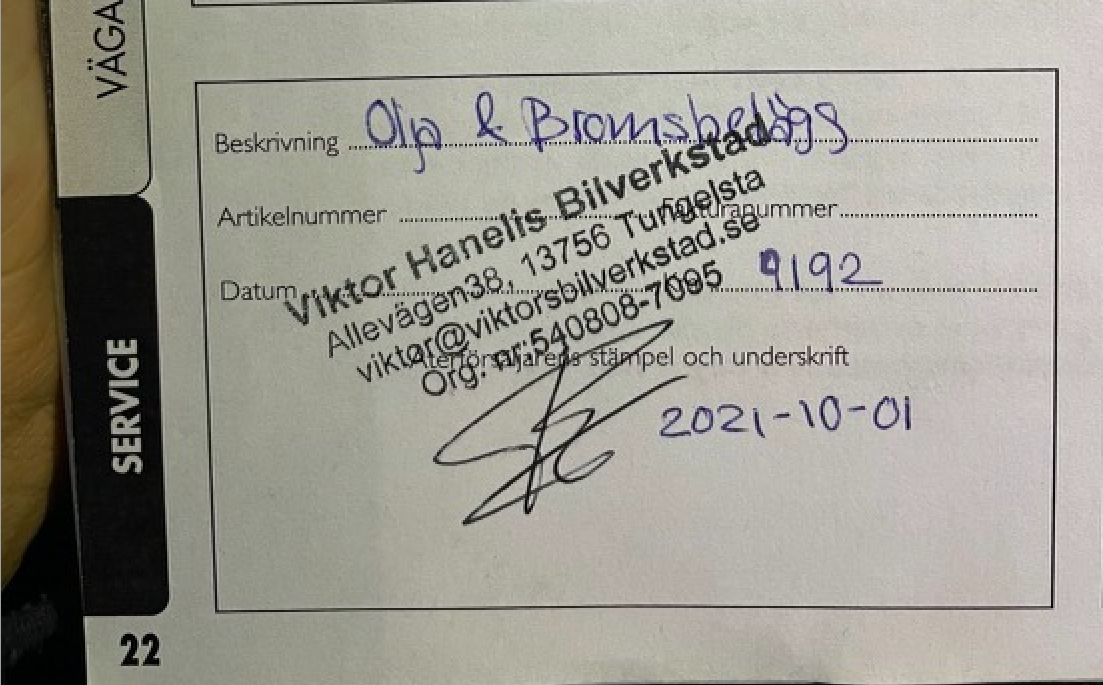 VÄGA
Beskrivning Olja & Bromsbelägs
Artikelnummer Fakturanummer
Datum 9192
Viktor Hanelis Bilverkstad
Allevägen38, 13756 Tungelsta
viktor@viktorsbilverkstad.se
Org. nr:540808-7095
Återförsäljarens stämpel och underskrift
2021-10-01
SERVICE
22